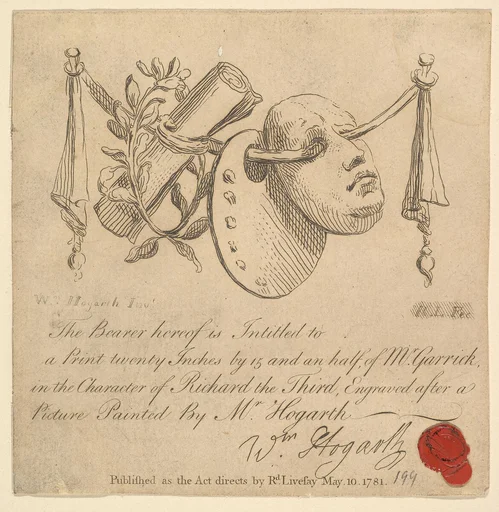 Wm. Hogarth Inv.t
R. L. Fe.
The Bearer hereof is Intitled to
a Print twenty Inches by 15 and an half, of Mr. Garrick,
in the Character of Richard the Third, Engraved after a
Picture Painted By Mr Hogarth
Wm Hogarth
Publiſhed as the Act directs by Rd. Liveſay May. 10. 1781. 199